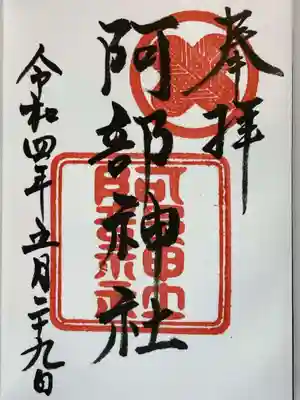 奉拝
阿部神社
令和四年五月二十九日
阿部神社